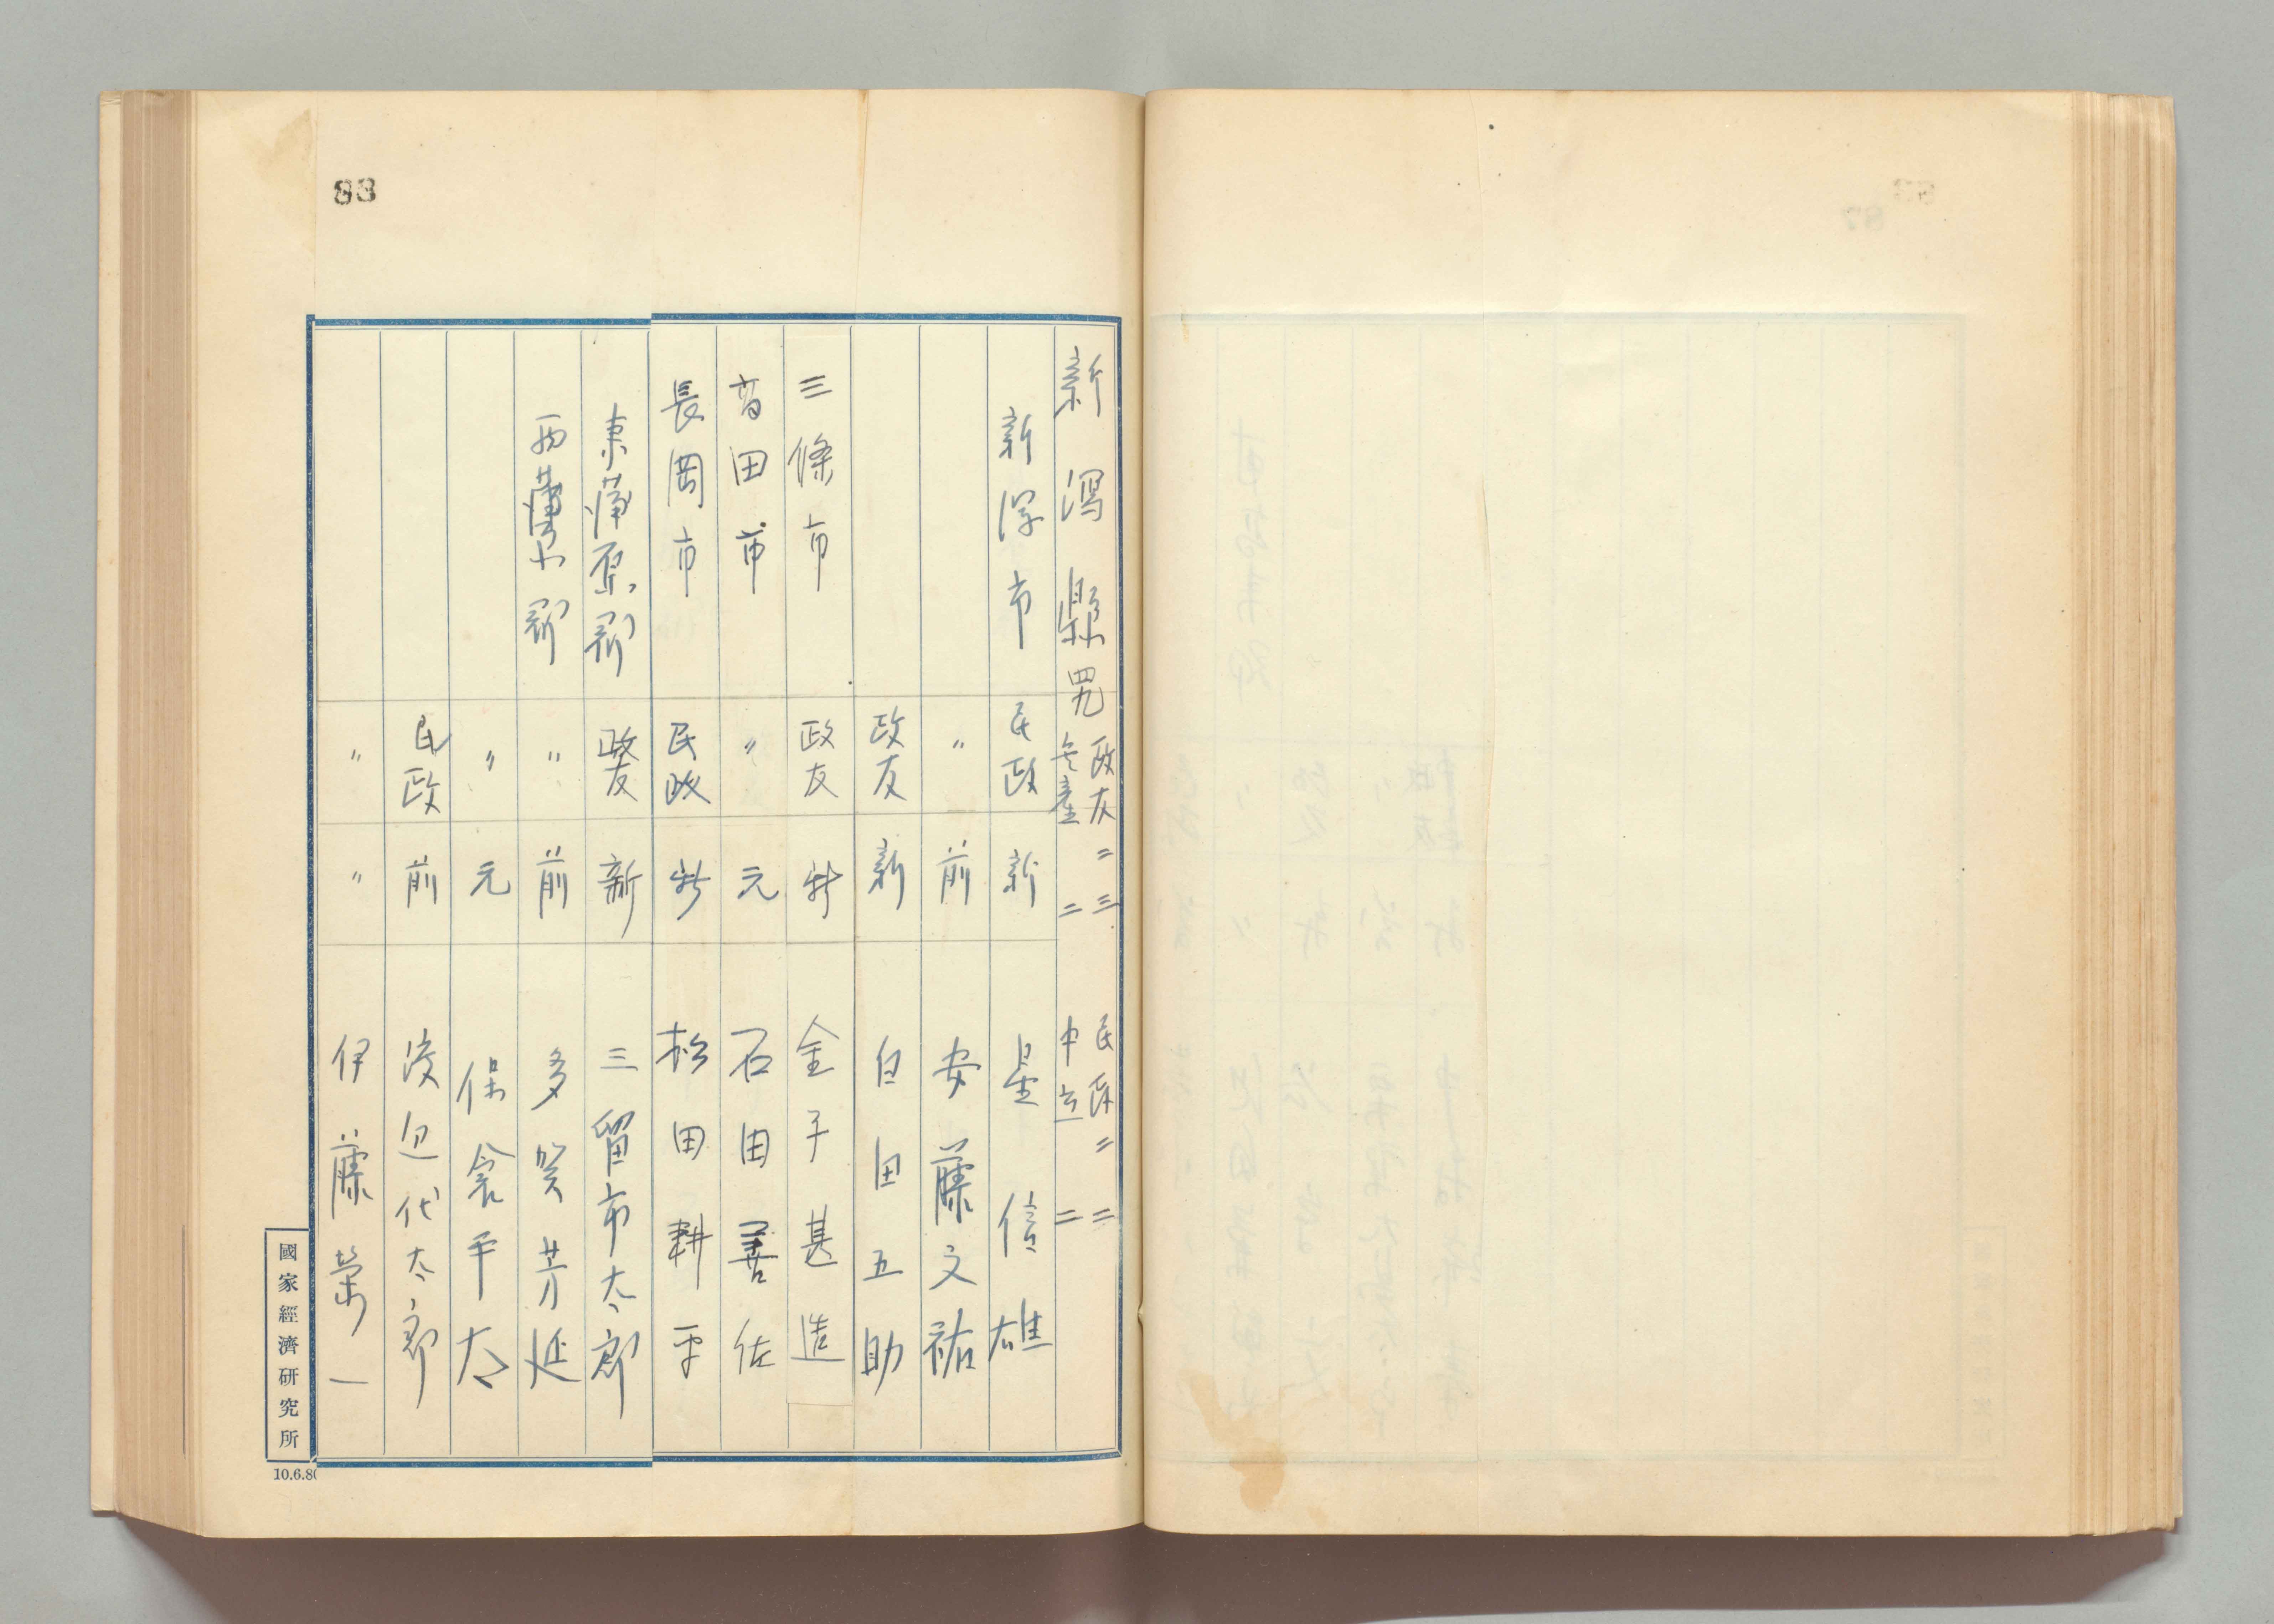 88
新潟縣 四九 政友 二三 民政 二二
無産 二 中立 二
新潟市 民政 新 星信雄
〃 前 安藤文祐
政友 新 白田五助
三條市 政友 新 金子甚造
高田市 〃 元 石田善佐
長岡市 民政 新 松田耕平
東蒲原郡 政友 新 三留市太郎
西蒲原郡 〃 前 多賀芳延
〃 元 保倉平太
民政 前 渡辺代太郎
〃 〃 伊藤榮一
國家經濟研究所
10.6.80